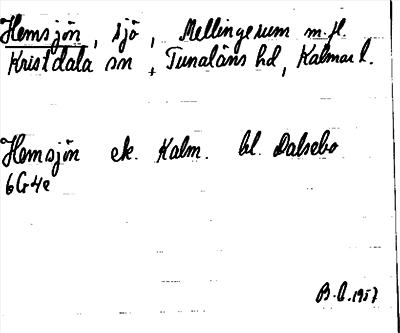 Hemsjön, sjö, Mellingerum m.fl.
Kristdala sn, Tunaläns hd, Kalmar l.
Hemsjön ek. Kalm. bl. Dalsebo
6G4e
B.A. 1957